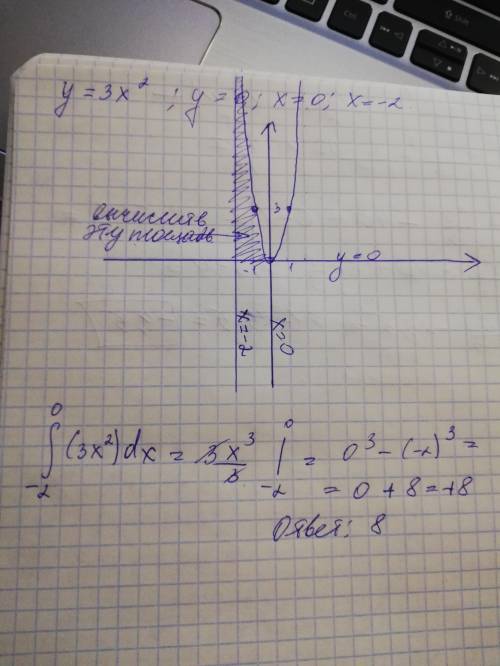 y = 3x² ; y = 0; x = 0; x = -2
вычислить
эту площадь
3
-1 1 y = 0
x = -2
x = 0
∫₋₂⁰ (3x²)dx = 3x³/3 |₋₂⁰ = 0³ - (-2)³ =
= 0 + 8 = +8
Ответ: 8